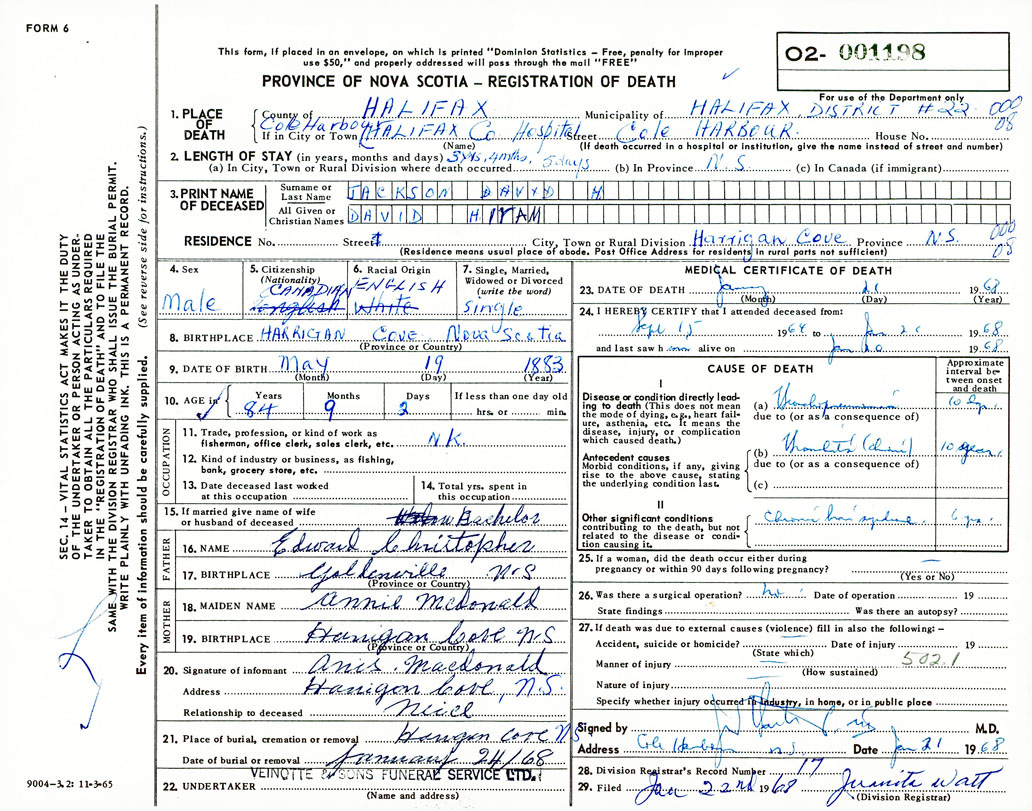 FORM 6
This form, if placed in an envelope, on which is printed "Dominion Statistics – Free, penalty for improper
use $50," and properly addressed will pass through the mail "FREE"
O2- 001198
PROVINCE OF NOVA SCOTIA – REGISTRATION OF DEATH
For use of the Department only
1. PLACE OF DEATH
County of HALIFAX Municipality of HALIFAX, DISTRICT #22 000 08
Cole Harbour
If in City or Town HALIFAX Co Hospital Street Cole HARBOUR. House No.
(Name) (If death occurred in a hospital or institution, give the name instead of street and number)
2. LENGTH OF STAY (in years, months and days) 3 yrs, 4 mths, 5 days
(a) In City, Town or Rural Division where death occurred (b) In Province N.S. (c) In Canada (if immigrant)
3. PRINT NAME OF DECEASED
Surname or Last Name JACKSON DAVID H
All Given or Christian Names DAVID HIRAM
RESIDENCE No. Street City, Town or Rural Division Harrigan Cove Province N.S. 000 08
(Residence means usual place of abode. Post Office Address for residents in rural parts not sufficient)
4. Sex
Male
5. Citizenship
(Nationality)
CANADIAN
English
6. Racial Origin
ENGLISH
White
7. Single, Married,
Widowed or Divorced
(write the word)
Single
8. BIRTHPLACE HARRIGAN Cove Nova Scotia
(Province or Country)
9. DATE OF BIRTH May 19 1883
(Month) (Day) (Year)
10. AGE in Years 84 Months 9 Days 2 If less than one day old
hrs. or min.
OCCUPATION
11. Trade, profession, or kind of work as
fisherman, office clerk, sales clerk, etc. N.K.
12. Kind of industry or business, as fishing,
bank, grocery store, etc.
13. Date deceased last worked
at this occupation
14. Total yrs. spent in
this occupation
15. If married give name of wife
or husband of deceased Bachelor
FATHER
16. NAME Edward Christopher
17. BIRTHPLACE Goldenville N.S
(Province or Country)
MOTHER
18. MAIDEN NAME Annie McDonald
19. BIRTHPLACE Harrigan Cove N S
(Province or Country)
20. Signature of informant Macdonald
Address Harrigon Cove, N.S.
Relationship to deceased Niece
21. Place of burial, cremation or removal Harrigan Cove N S
Date of burial or removal January 24/68
22. UNDERTAKER VEINOTTE & SONS FUNERAL SERVICE LTD.
(Name and address)
MEDICAL CERTIFICATE OF DEATH
23. DATE OF DEATH 21 1968
(Month) (Day) (Year)
24. I HEREBY CERTIFY that I attended deceased from:
Sept 15 1964 to Jan 1968
and last saw h alive on Jan 20 1968
CAUSE OF DEATH
Approximate
interval be-
tween onset
and death
I
Disease or condition directly lead-
ing to death (This does not mean
the mode of dying, e.g., heart fail-
ure, asthenia, etc. It means the
disease, injury, or complication
which caused death.)
(a) 10
due to (or as a consequence of)
Antecedent causes
Morbid conditions, if any, giving
rise to the above cause, stating
the underlying condition last.
(b) 10 years
due to (or as a consequence of)
(c)
II
Other significant conditions
contributing to the death, but not
related to the disease or condi-
tion causing it.
25. If a woman, did the death occur either during
pregnancy or within 90 days following pregnancy? —
(Yes or No)
26. Was there a surgical operation? no Date of operation 19
State findings Was there an autopsy?
27. If death was due to external causes (violence) fill in also the following: –
Accident, suicide or homicide? Date of injury 19
(State which) 502.1
Manner of injury
(How sustained)
Nature of injury
Specify whether injury occurred in industry, in home, or in public place
Signed by M.D.
Address Cole Harbour N.S. Date Jan 21 1968
28. Division Registrar's Record Number 17
29. Filed Jan 22nd 1968 Juanita Watt
(Division Registrar)
SEC. 14 – VITAL STATISTICS ACT MAKES IT THE DUTY
OF THE UNDERTAKER OR PERSON ACTING AS UNDER-
TAKER TO OBTAIN ALL THE PARTICULARS REQUIRED
IN THE "REGISTRATION OF DEATH" AND TO FILE THE
SAME WITH THE DIVISION REGISTRAR WHO SHALL ISSUE THE BURIAL PERMIT.
WRITE PLAINLY WITH UNFADING INK. THIS IS A PERMANENT RECORD.
Every item of information should be carefully supplied. (See reverse side for instructions.)
9004-3.2: 11-3-65